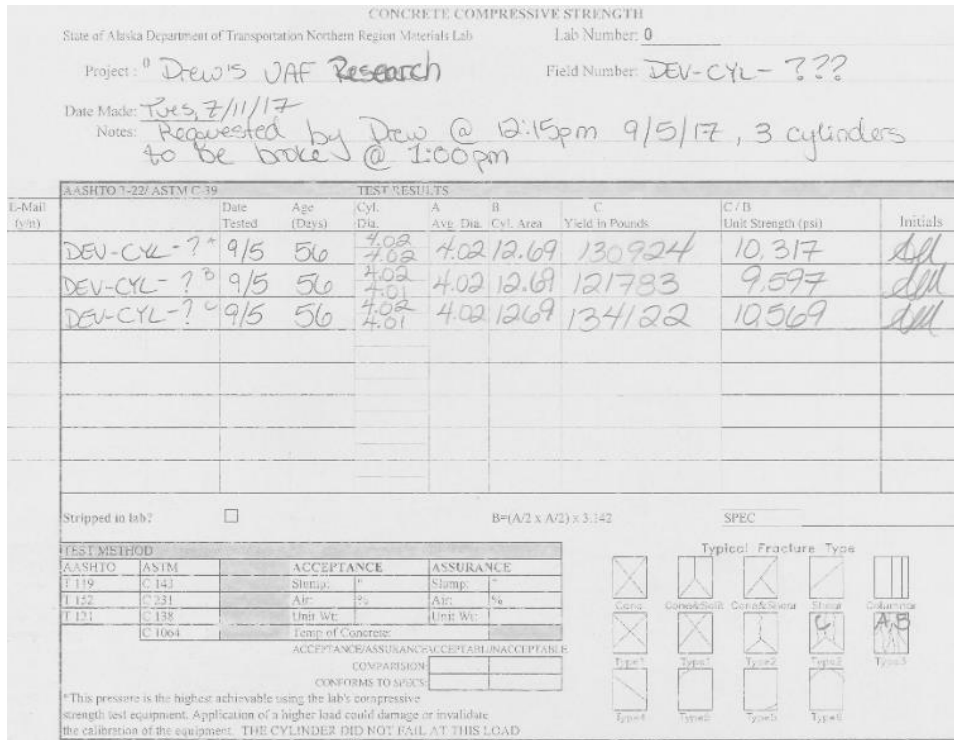 CONCRETE COMPRESSIVE STRENGTH
State of Alaska Department of Transportation Northern Region Materials Lab Lab Number: 0
Project : 0 Drew's UAF Research Field Number: DEV-CYL- ???
Date Made: Tues, 7/11/17
Notes: Requested by Drew @ 12:15pm 9/5/17, 3 cylinders
to be broke @ 1:00pm
AASHTO T-22/ ASTM C-39 TEST RESULTS
E-Mail Date Age Cyl. A B C C / B
(y/n) Tested (Days) Dia. Avg. Dia. Cyl. Area Yield in Pounds Unit Strength (psi) Initials
DEV-CYL-? A 9/5 56 4.02 4.02 4.02 12.69 130924 10,317
DEV-CYL-? B 9/5 56 4.02 4.01 4.02 12.69 121783 9,597
DEV-CYL-? C 9/5 56 4.02 4.01 4.02 1269 134122 10,569
Stripped in lab? B=(A/2 x A/2) x 3.142 SPEC
TEST METHOD
AASHTO ASTM ACCEPTANCE ASSURANCE
T 119 C 143 Slump: " Slump: "
T 152 C 231 Air: % Air: %
T 121 C 138 Unit Wt: Unit Wt:
C 1064 Temp of Concrete:
ACCEPTANCE/ASSURANCE ACCEPTABLE/UNACCEPTABLE
COMPARISION:
CONFORMS TO SPECS:
*This pressure is the highest achievable using the lab's compressive
strength test equipment. Application of a higher load could damage or invalidate
the calibration of the equipment. THE CYLINDER DID NOT FAIL AT THIS LOAD
Typical Fracture Type
Cone Cone&Split Cone&Shear Shear Columnar
C A,B
Type1 Type1 Type2 Type2 Type3
Type4 Type5 Type5 Type6